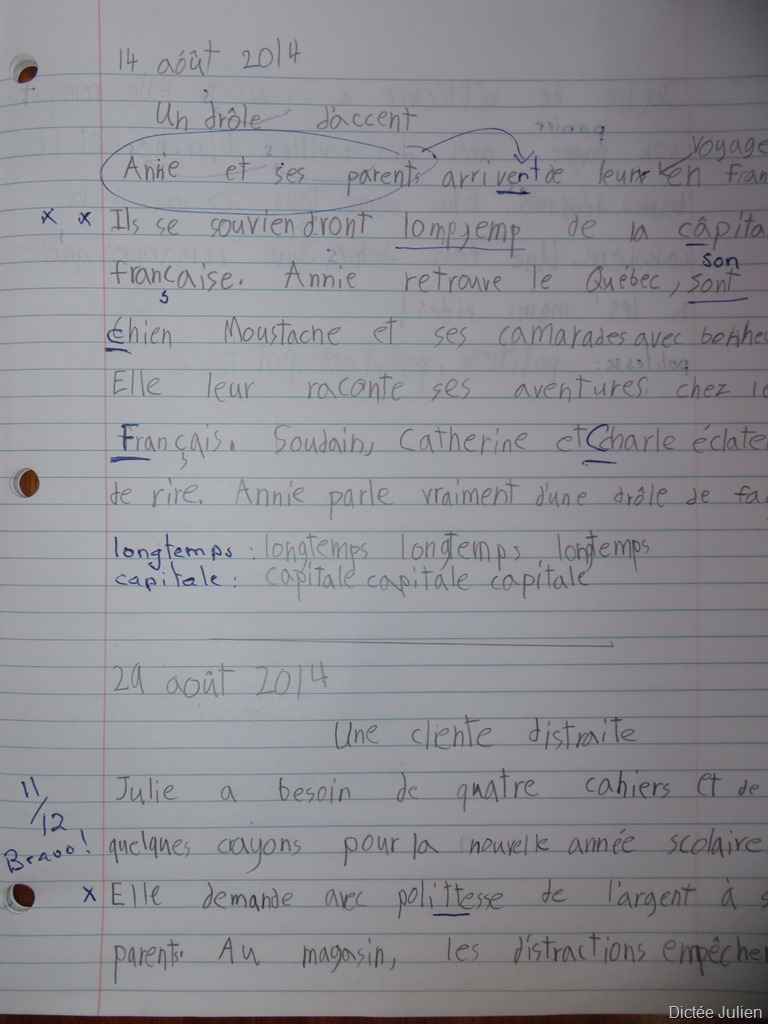 14 août 2014
Un drôle d'accent
Annie et ses parents arrivent de leur voyage en Fran
x x Ils se souviendront lompjemp de la câpita
française. Annie retrouve le Québec, sont son
Chien Moustache et ses camarades avec bonheu
Elle leur raconte ses aventures chez le
Français. Soudain, Catherine et Charle éclate
de rire. Annie parle vraiment d'une drôle de fa
longtemps : longtemps longtemps longtemps
capitale : capitale capitale capitale
29 août 2014
Une cliente distraite
Julie a besoin de quatre cahiers et de
11/12 Bravo! quelques crayons pour la nouvelle année scolaire
x Elle demande avec polittesse de l'argent à s
parents. Au magasin, les distractions empêchen
Dictée Julien